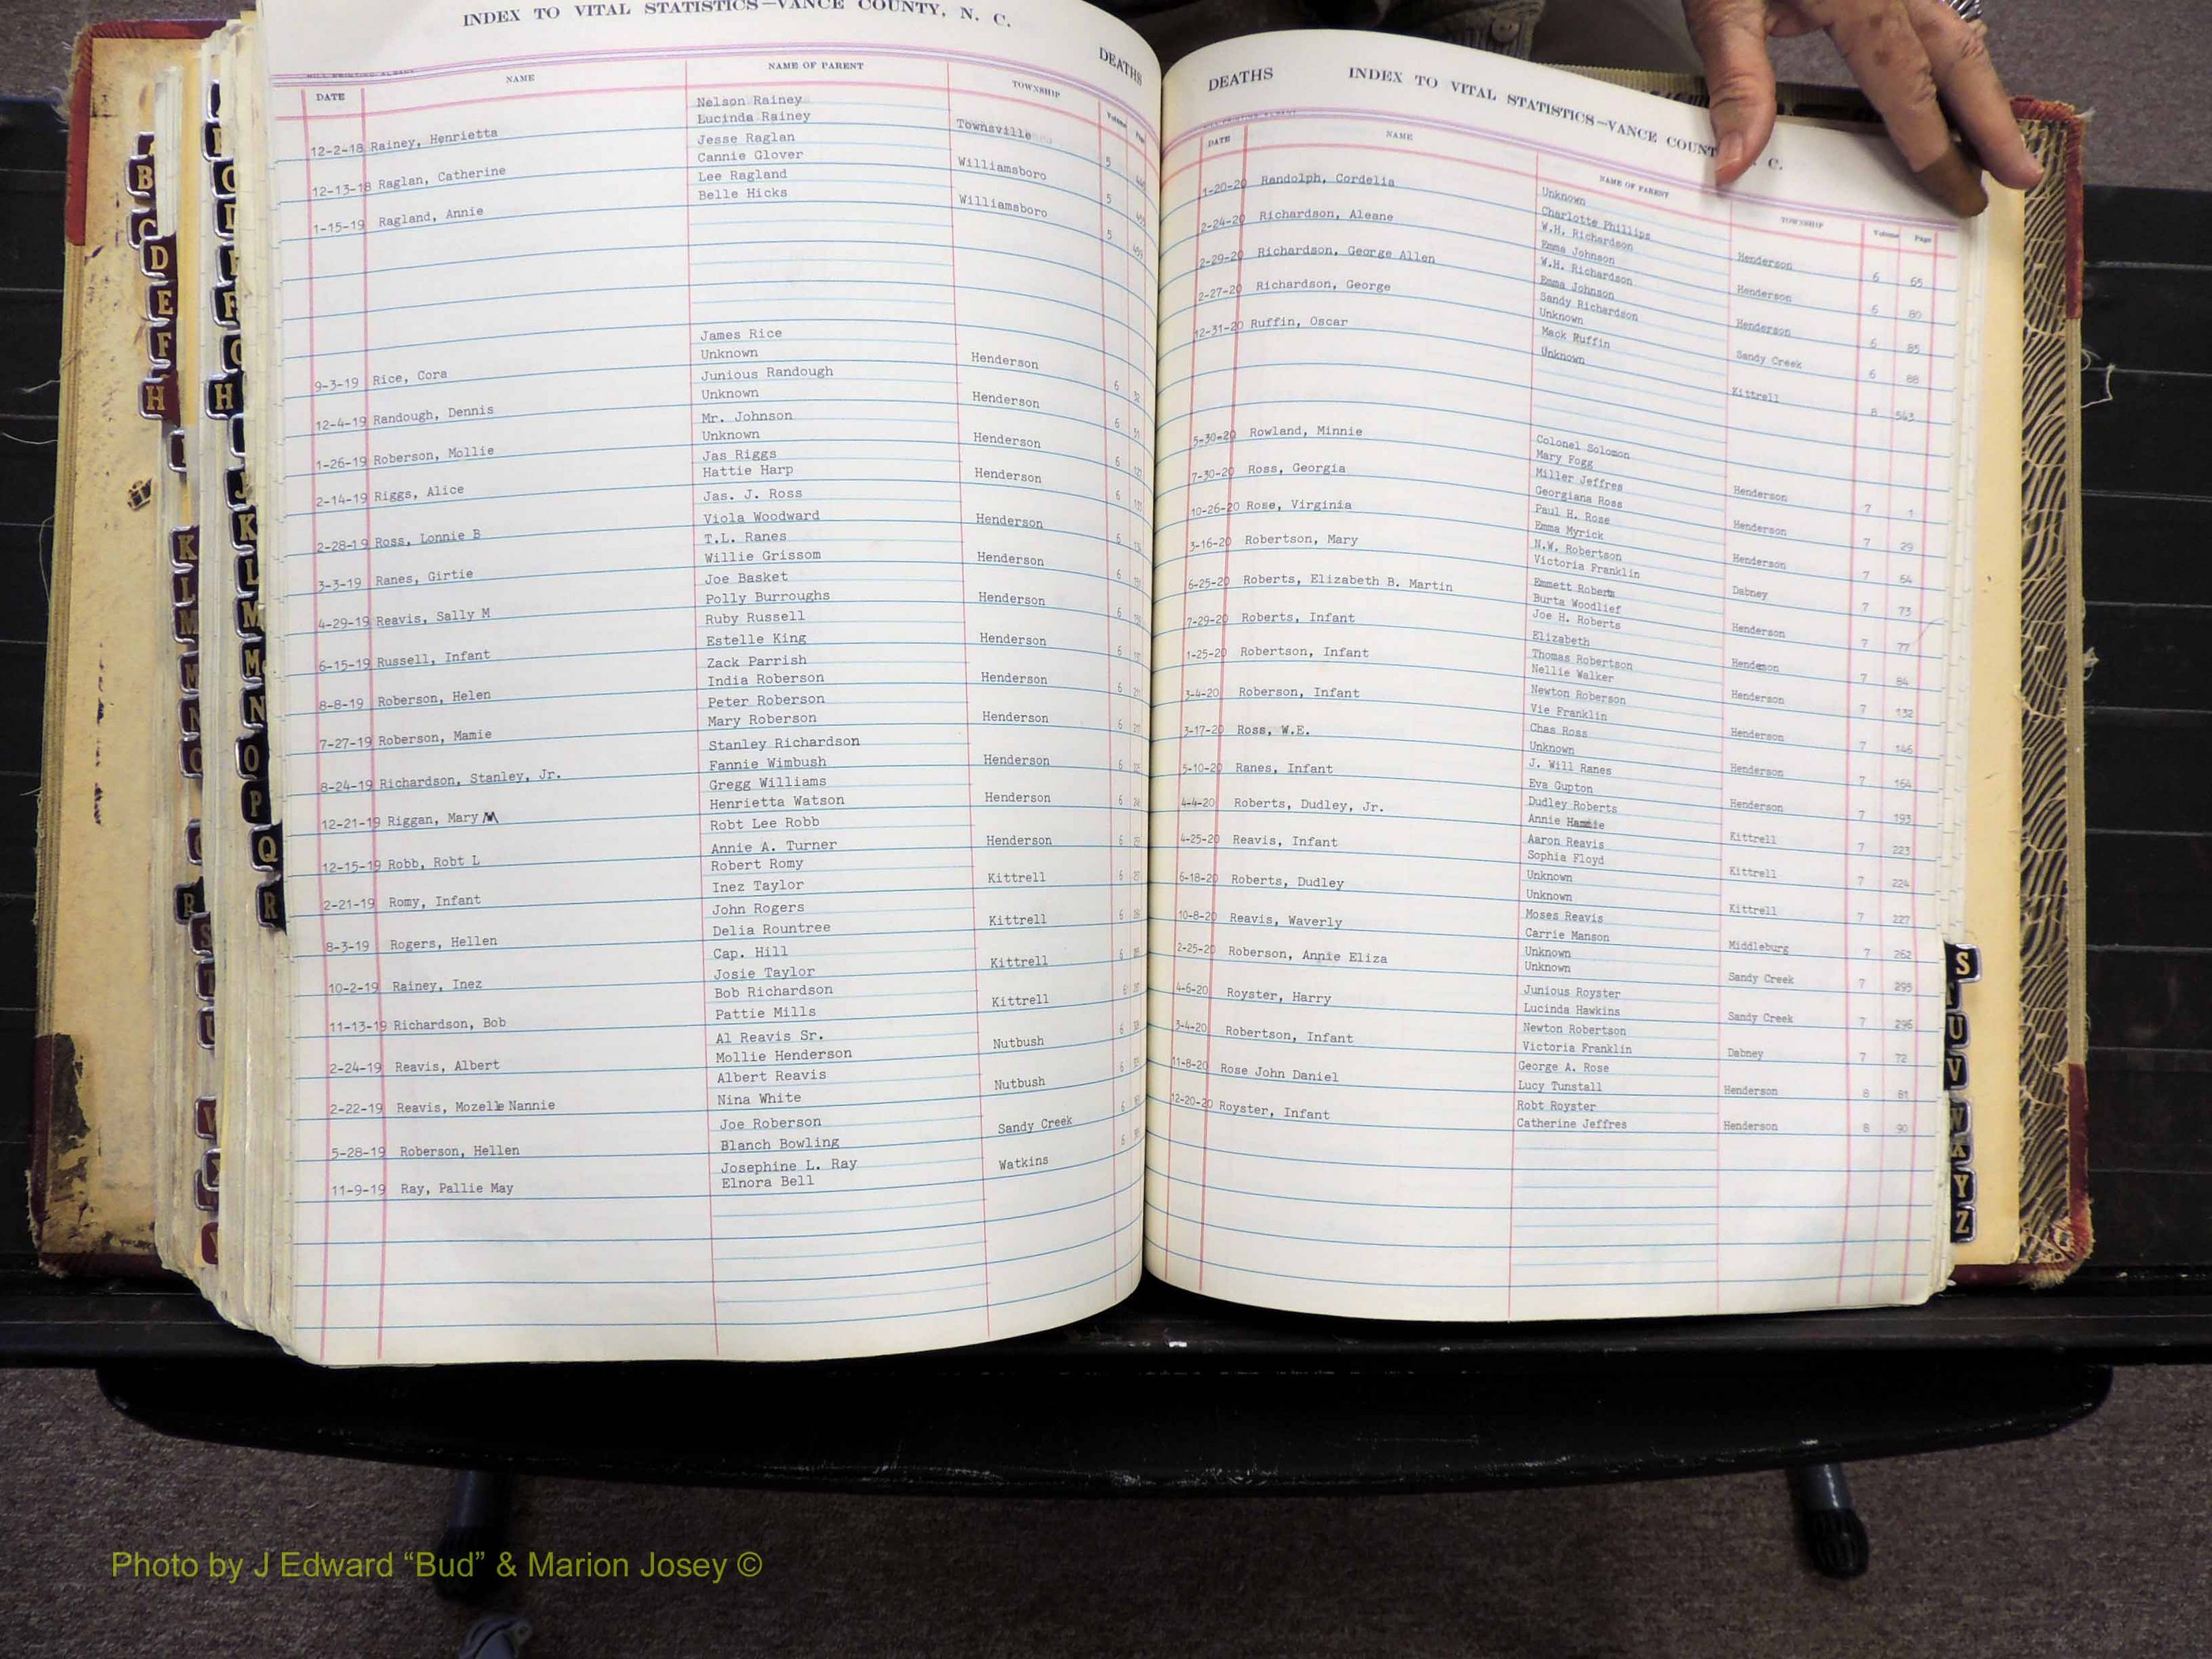 INDEX TO VITAL STATISTICS—VANCE COUNTY, N. C.
DEATHS
DATE NAME NAME OF PARENT TOWNSHIP Volume Page
Nelson Rainey
12-2-18 Rainey, Henrietta Lucinda Rainey Townsville 5
Jesse Raglan
12-13-18 Raglan, Catherine Cannie Glover Williamsboro 5
Lee Ragland
1-15-19 Ragland, Annie Belle Hicks Williamsboro 5
James Rice
9-3-19 Rice, Cora Unknown Henderson 6
Junious Randough
12-4-19 Randough, Dennis Unknown Henderson 6
Mr. Johnson
1-26-19 Roberson, Mollie Unknown Henderson 6
Jas Riggs
2-14-19 Riggs, Alice Hattie Harp Henderson 6
Jas. J. Ross
2-28-19 Ross, Lonnie B Viola Woodward Henderson 6
T.L. Ranes
3-3-19 Ranes, Girtie Willie Grissom Henderson 6
Joe Basket
4-29-19 Reavis, Sally M Polly Burroughs Henderson 6
Ruby Russell
6-15-19 Russell, Infant Estelle King Henderson 6
Zack Parrish
8-8-19 Roberson, Helen India Roberson Henderson 6
Peter Roberson
7-27-19 Roberson, Mamie Mary Roberson Henderson 6
Stanley Richardson
8-24-19 Richardson, Stanley, Jr. Fannie Wimbush Henderson 6
Gregg Williams
12-21-19 Riggan, Mary M Henrietta Watson Henderson 6
Robt Lee Robb
12-15-19 Robb, Robt L Annie A. Turner Henderson 6
Robert Romy
2-21-19 Romy, Infant Inez Taylor Kittrell 6
John Rogers
8-3-19 Rogers, Hellen Delia Rountree Kittrell 6
Cap. Hill
10-2-19 Rainey, Inez Josie Taylor Kittrell 6
Bob Richardson
11-13-19 Richardson, Bob Pattie Mills Kittrell 6
Al Reavis Sr.
2-24-19 Reavis, Albert Mollie Henderson Nutbush 6
Albert Reavis
2-22-19 Reavis, Mozelle Nannie Nina White Nutbush 6
Joe Roberson
5-28-19 Roberson, Hellen Blanch Bowling Sandy Creek 6
Josephine L. Ray
11-9-19 Ray, Pallie May Elnora Bell Watkins 6
DEATHS
INDEX TO VITAL STATISTICS—VANCE COUNT C.
DATE NAME NAME OF PARENT TOWNSHIP Volume Page
Unknown
1-20-20 Randolph, Cordelia Charlotte Phillips Henderson 6 65
W.H. Richardson
2-24-20 Richardson, Aleane Emma Johnson Henderson 6 80
W.H. Richardson
2-29-20 Richardson, George Allen Emma Johnson Henderson 6 85
Sandy Richardson
2-27-20 Richardson, George Unknown Sandy Creek 6 88
Mack Ruffin
12-31-20 Ruffin, Oscar Unknown Kittrell 8 543
Colonel Solomon
5-30-20 Rowland, Minnie Mary Fogg Henderson 7 1
Miller Jeffres
7-30-20 Ross, Georgia Georgiana Ross Henderson 7 29
Paul H. Rose
10-26-20 Rose, Virginia Emma Myrick Henderson 7 64
N.W. Robertson
3-16-20 Robertson, Mary Victoria Franklin Dabney 7 73
Emmett Roberts
6-25-20 Roberts, Elizabeth B. Martin Burta Woodlief Henderson 7 77
Joe H. Roberts
7-29-20 Roberts, Infant Elizabeth Henderson 7 84
Thomas Robertson
1-25-20 Robertson, Infant Nellie Walker Henderson 7 132
Newton Roberson
3-4-20 Roberson, Infant Vie Franklin Henderson 7 146
Chas Ross
3-17-20 Ross, W.E. Unknown Henderson 7 164
J. Will Ranes
5-10-20 Ranes, Infant Eva Gupton Henderson 7 193
Dudley Roberts
4-4-20 Roberts, Dudley, Jr. Annie Kittrell 7 223
Aaron Reavis
4-25-20 Reavis, Infant Sophia Floyd Kittrell 7 224
Unknown
6-18-20 Roberts, Dudley Unknown Kittrell 7 227
Moses Reavis
10-8-20 Reavis, Waverly Carrie Manson Middleburg 7 262
Unknown
2-25-20 Roberson, Annie Eliza Unknown Sandy Creek 7 295
Junious Royster
4-6-20 Royster, Harry Lucinda Hawkins Sandy Creek 7 296
Newton Robertson
3-4-20 Robertson, Infant Victoria Franklin Dabney 7 72
George A. Rose
11-8-20 Rose John Daniel Lucy Tunstall Henderson 8 81
Robt Royster
12-20-20 Royster, Infant Catherine Jeffres Henderson 8 90
B
C
D
E
F
H
K
L
M
N
O
P
Q
R
S
U
V
Y
Z
Photo by J Edward “Bud” & Marion Josey ©